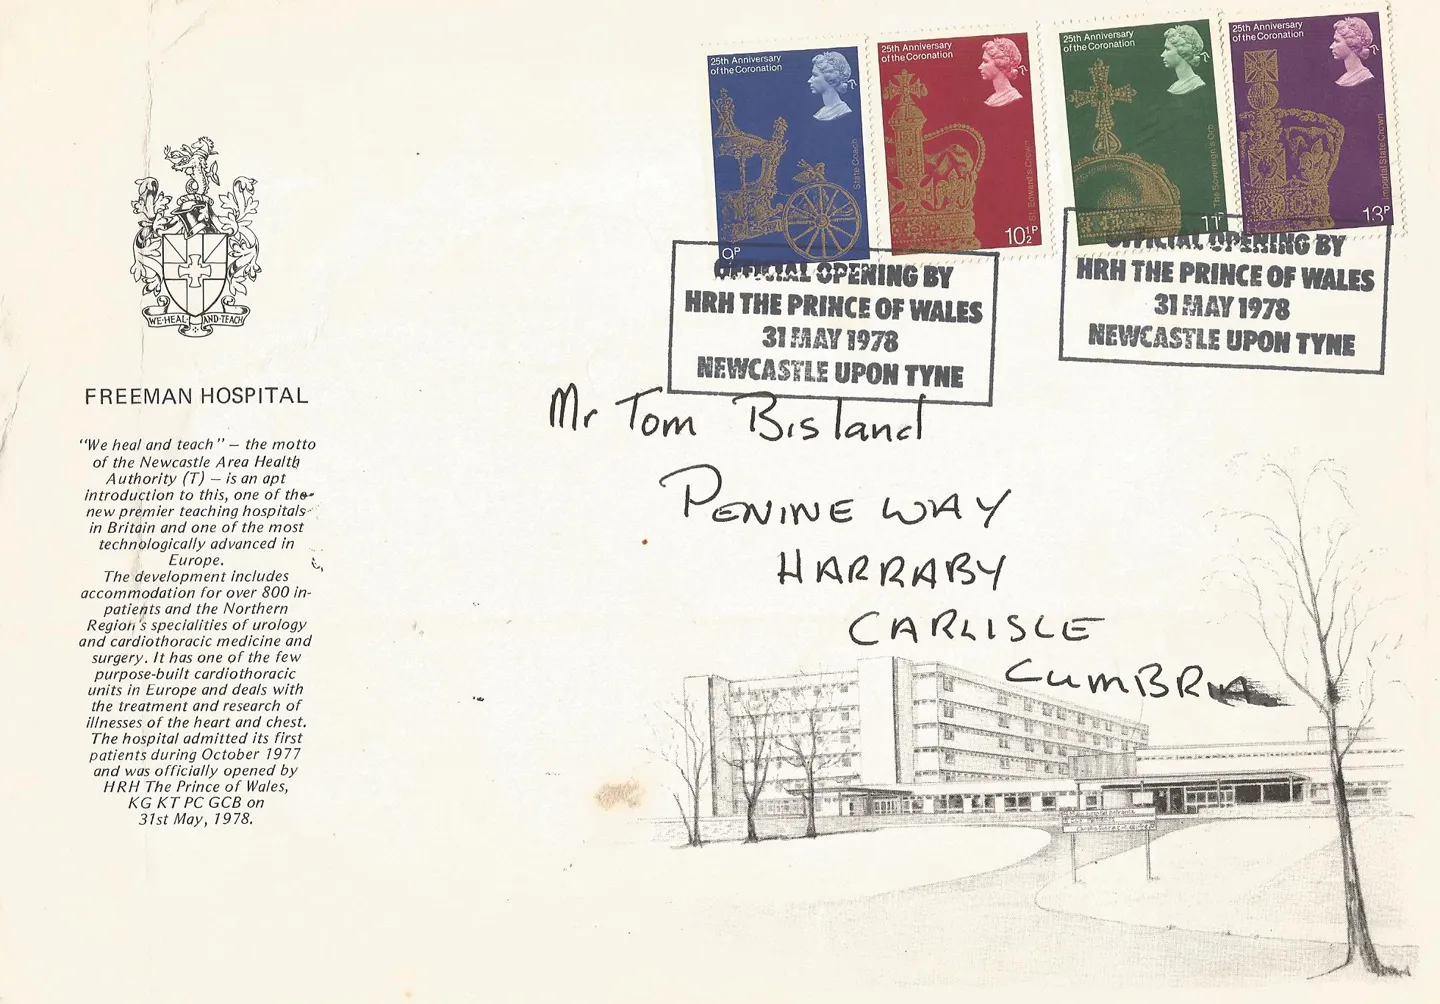 25th Anniversary
of the Coronation
State Coach
9P
25th Anniversary
of the Coronation
St. Edward's Crown
10½P
25th Anniversary
of the Coronation
The Sovereign's Orb
11P
25th Anniversary
of the Coronation
Imperial State Crown
13P
OFFICIAL OPENING BY
HRH THE PRINCE OF WALES
31 MAY 1978
NEWCASTLE UPON TYNE
OFFICIAL OPENING BY
HRH THE PRINCE OF WALES
31 MAY 1978
NEWCASTLE UPON TYNE
WE·HEAL AND·TEACH
FREEMAN HOSPITAL
"We heal and teach" — the motto
of the Newcastle Area Health
Authority (T) — is an apt
introduction to this, one of the
new premier teaching hospitals
in Britain and one of the most
technologically advanced in
Europe.
The development includes
accommodation for over 800 in-
patients and the Northern
Region's specialities of urology
and cardiothoracic medicine and
surgery. It has one of the few
purpose-built cardiothoracic
units in Europe and deals with
the treatment and research of
illnesses of the heart and chest.
The hospital admitted its first
patients during October 1977
and was officially opened by
HRH The Prince of Wales,
KG KT PC GCB on
31st May, 1978.
Mr Tom Bisland
PENINE WAY
HARRABY
CARLISLE
CUMBRIA